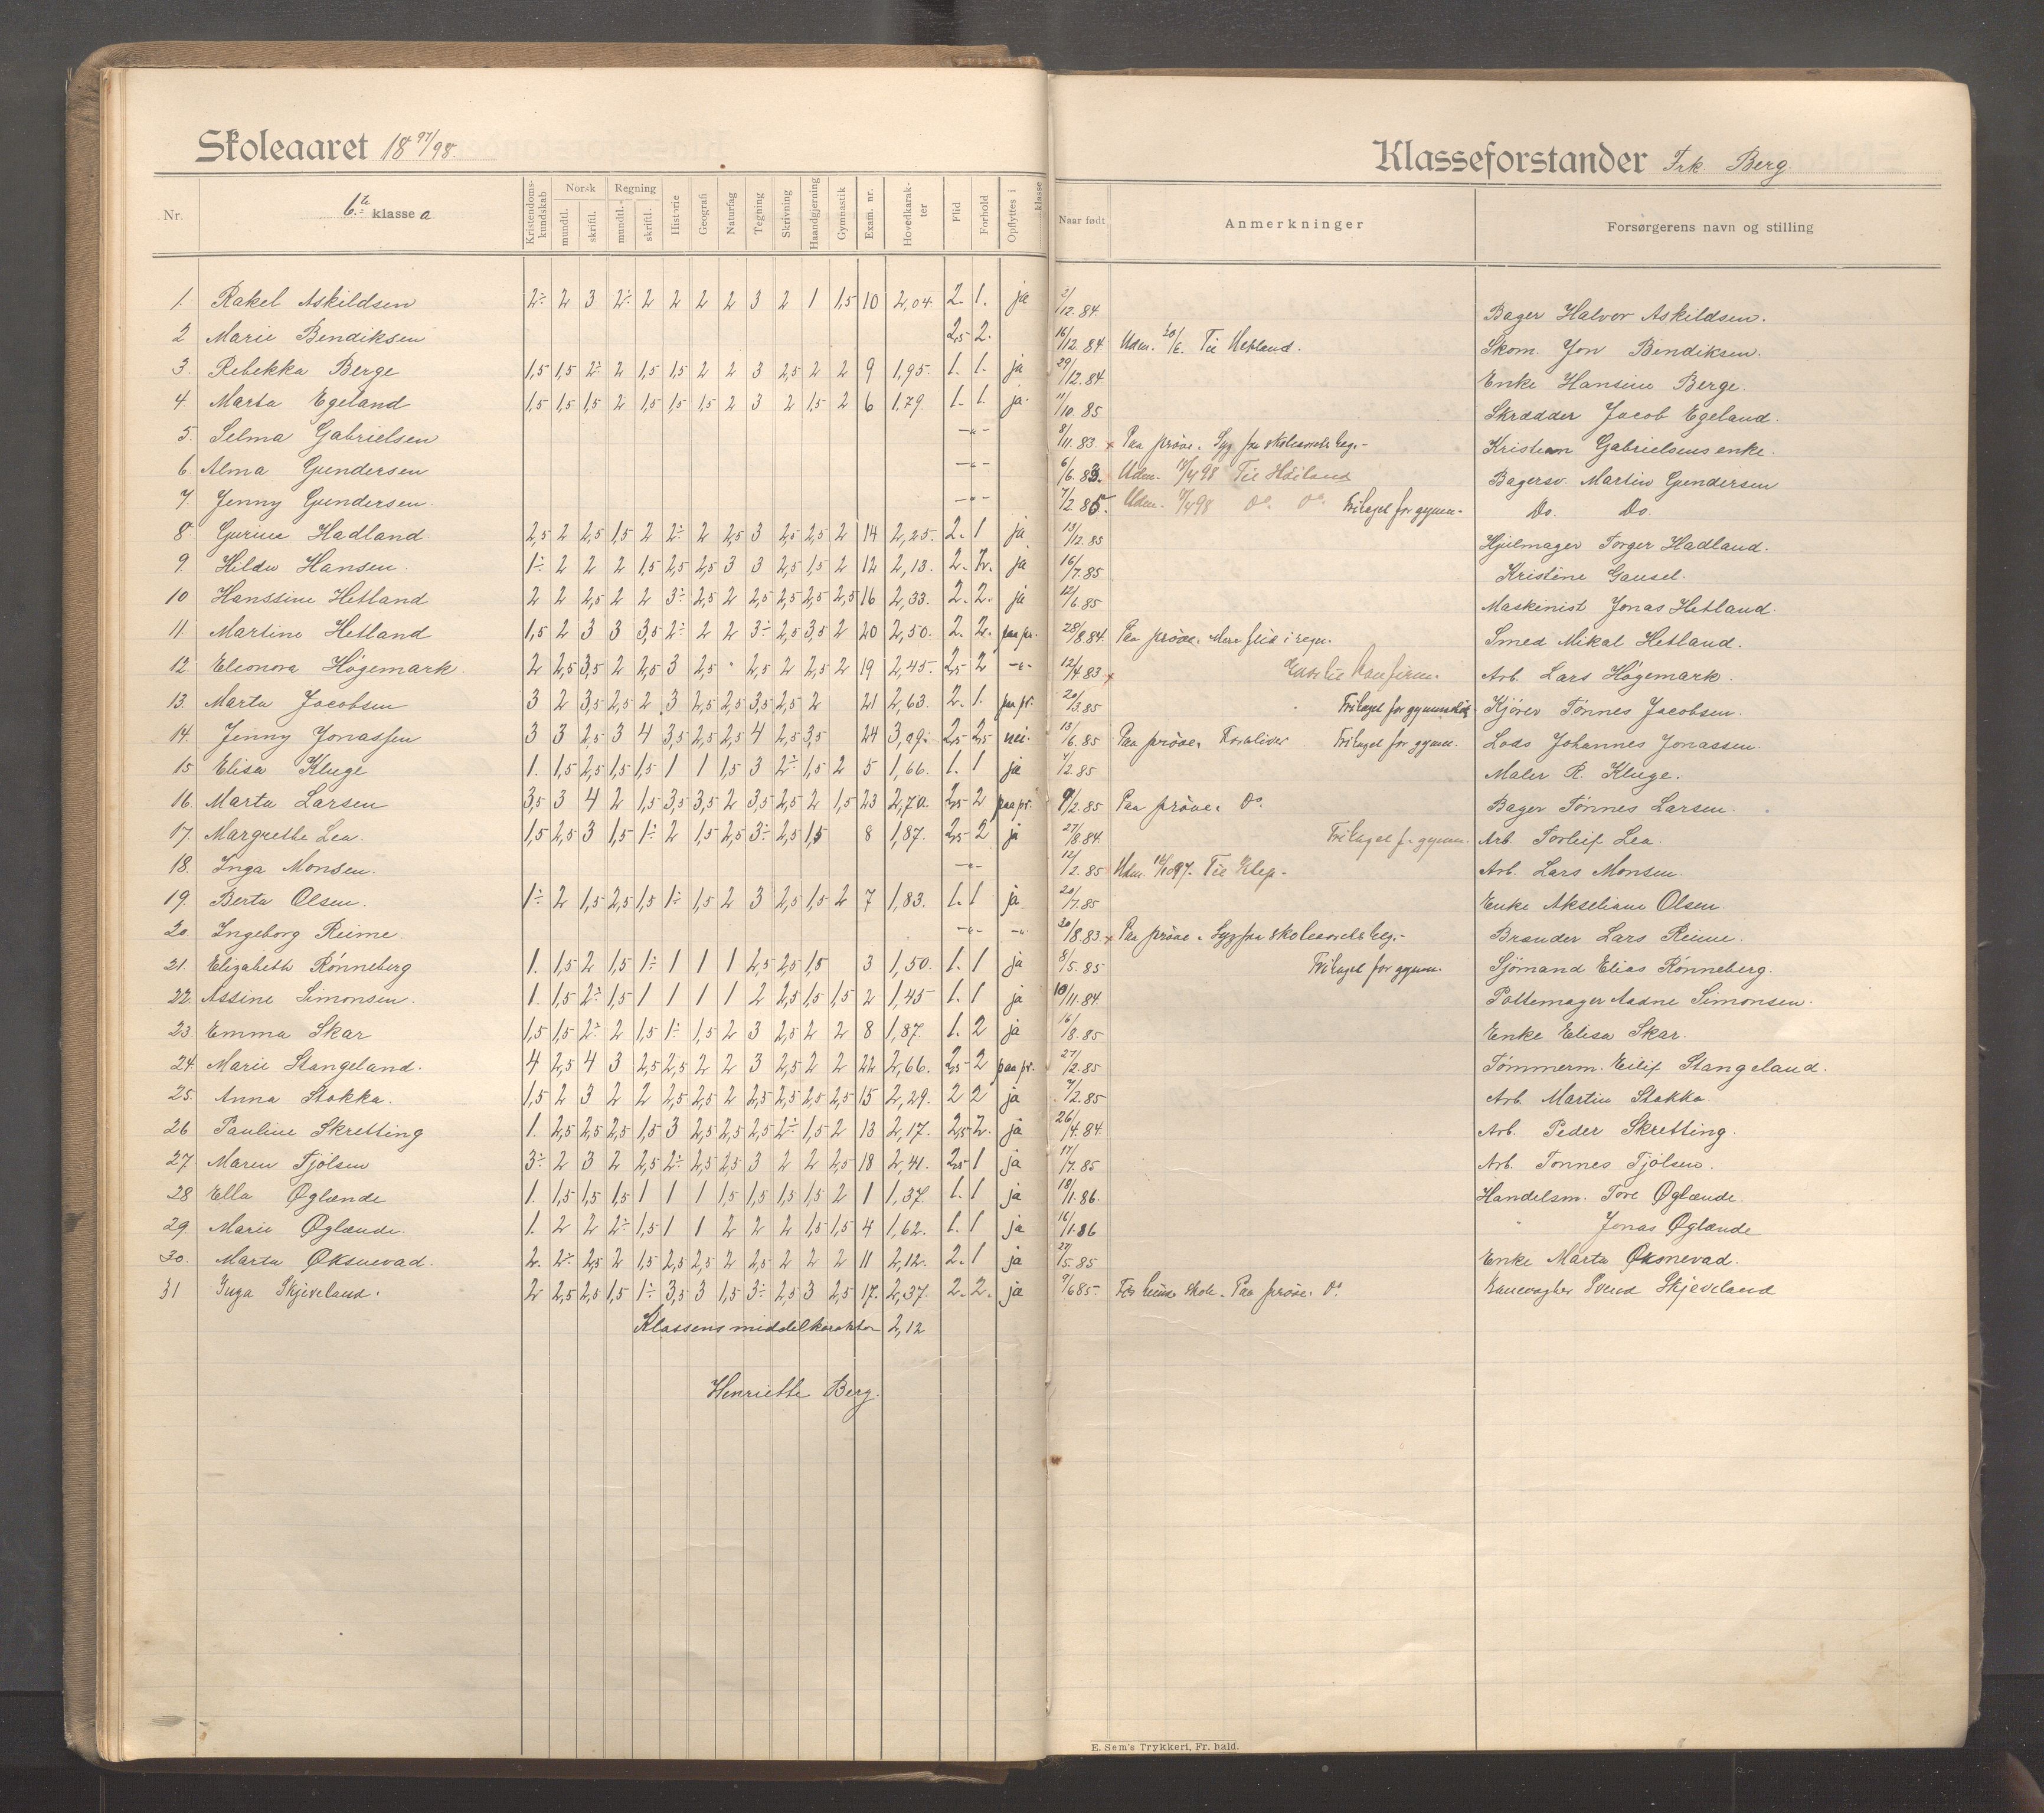 Skoleaaret 18 97/98.
Klasseforstander Frk Berg
Nr. 6te klasse a Kristendomskundskab Norsk mundtl. skriftl. Regning mundtl. skriftl. Historie Geografi Naturfag Tegning Skrivning Haandgjerning Gymnastik Exam. nr. Hovedkarakter Flid Forhold Opflyttes i klasse Naar født Anmerkninger Forsørgerens navn og stilling
1. Rakel Askildsen 2÷ 2 3 2÷ 2 2 2 2 3 2 1 1,5 10 2,04. 2. 1. ja 2/12.84 Bager Halvor Askildsen.
2 Marie Bendiksen 2,5 2. 16/12.84 Udm. Til Hetland. Skom. Jon Bendiksen.
3. Rebekka Berge 1,5 1,5 2÷ 2 1,5 1,5 2 2 3 2,5 2 2 9 1,95. 1. 1. ja 29/12.84 Enke Hansine Berge.
4. Marta Egeland 1,5 1,5 1,5 2 1,5 1,5 1,5 2 3 2 1,5 2 6 1,79 1. 1. ja. 11/10.85 Skrædder Jacob Egeland.
5. Selma Gabrielsen -"- 8/11.83. x Paa prøve. Syg fra skoleaarets beg.- Kristian Gabrielsens enke.
6. Alma Gundersen -"- 6/6.83. Udm. Til Høiland Bagersv. Martin Gundersen
7. Jenny Gundersen. -"- 7/2.85. Udm. Do. Do. Fritaget for gymn.- Do. Do.
8. Gurine Hadland. 2,5 2 2,5 1,5 2 2÷ 2 2,5 3 2,5 2,5 2 14 2,25. 2. 1 ja 13/12.85 Hjulmager Torger Hadland.
9. Hilda Hansen. 1÷ 2 2 2 1,5 2,5 2,5 3 3 2,5 1,5 2 12 2,13. 2. 2. ja 16/7.85 Kristine Gausel.
10 Hanssine Hetland 2 2 2,5 2 2 3÷ 2,5 2 2,5 2,5 2,5 2,5 16 2,33. 2. 2. ja 12/6.85 Maskinist Jonas Hetland.
11. Martine Hetland 1,5 2 3 3 3,5 2÷ 2 2 3÷ 2,5 3,5 2 20 2,50. 2. 2. paa pr. 28/8.84. Paa prøve. Mere flid i regn. Smed Mikal Hetland.
12. Eleonora Høgemark. 2 2,5 3,5 2 2,5 3 2,5 " 2,5 2 2,5 2 19 2,45. 2,5 2 -"- 12/4.83. x Arb. Lars Høgemark.
13. Marta Jacobsen 3 2 3,5 2,5 2 3 2,5 2,5 3,5 2,5 2 21 2,63. 2. 1. paa pr. 20/3.85 Fritaget for gymnastik Kjører Tønnes Jacobsen.
14. Jenny Jonassen 3 3 2,5 3 4 3,5 2,5 2,5 4 2,5 3,5 24 3,09. 2,5 2,5 nei. 13/6.85 Paa prøve. Forbliver Fritaget for gymn. Lods Johannes Jonassen.
15 Elisa Kluge 1. 1,5 2,5 1,5 1,5 1 1 1,5 3 2÷ 1,5 2 5 1,66. 1. 1 ja 7/2.85 Maler R. Kluge.
16. Marta Larsen 3,5 3 4 2 1,5 3,5 3,5 2 3,5 2,5 2 1,5 23 2,70. 2,5 2 paa pr. 9/2.85 Paa prøve. Do. Bager Tønnes Larsen.
17. Margrethe Lea. 1,5 2,5 3 1,5 1÷ 2 1,5 2,5 3÷ 2,5 1,5 8 1,87. 2,5 2 ja 27/8.84. Fritaget f. gymn. Arb. Torleif Lea.
18. Inga Monsen. -"- 12/2.85 Udm. 14/10 97. Til Klep- Arb. Lars Monsen.
19. Berta Olsen. 1÷ 2 1,5 2,5 1,5 1÷ 1,5 2 3 2,5 1,5 2 7 1,83. 1. 1 ja 20/7.85 Enke Akseliane Olsen.
20. Ingeborg Reime. -"- -" 30/8.83. x Paa prøve. Syg fra skoleaarets beg.- Brønder Lars Reime.
21. Elizabeth Rønneberg 1. 1,5 2 1,5 1÷ 1 1 1 2,5 2,5 1,5 3 1,50. 1. 1 ja 8/5.85 Fritaget for gymn. Sjömand Elias Rønneberg.
22. Assine Simonsen. 1. 1,5 2÷ 1,5 1 1 1 1 2 2,5 1,5 1,5 2 1,45 1. 1 ja 10/11.84. Pottemager Aadne Simonsen.
23. Emma Skar 1,5 1,5 2÷ 2 1,5 1÷ 1,5 2 3 2,5 2 2 8 1,87. 1. 2 ja 16/8.85 Enke Elisa Skar.
24. Marie Stangeland. 4 2,5 4 3 2,5 2,5 2 2 3 2,5 2 2 22 2,66. 2,5 2 paa pr. 27/2.85 Tømmerm. Eilif Stangeland.
25. Anna Stokka. 1,5 2 3 2 2 2,5 2,5 2 2,5 2,5 2,5 2,5 15 2,29. 2 2 ja 7/2.85 Arb. Martin Stokka.
26 Pauline Skretting 1. 2,5 2,5 2,5 1,5 3 2,5 2,5 2,5 2÷ 1,5 2 13 2,17. 2,5 2. ja 26/4.84. Arb. Peder Skretting.
27 Maren Tjølsen 3÷ 2 3 2 2,5 2÷ 2,5 2,5 3 2 2 2,5 18 2,41. 2,5 1 ja 17/7.85 Arb. Tønnes Tjølsen.
28 Ella Øglænde 1. 1,5 1,5 1,5 1 1 1 1,5 1,5 1,5 1,5 2 1 1,37. 1. 1 ja 18/1.86. Handelsm. Tore Øglænde.
29. Marie Øglænde. 1. 2 2 2÷ 1,5 1 1 2 2 2 1,5 1,5 4 1,62. 1. 1 ja 16/1.86 " Jonas Øglænde
30. Marta Øksnevad. 2. 2÷ 2,5 2 1,5 2,5 2,5 2 2,5 2 2 2 11 2,12. 2. 1 ja 27/5.85 Enke Marta Øksnevad.
31 Inga Skjeveland. 2 2,5 2,5 1,5 1÷ 3,5 3 1,5 3÷ 2,5 3 2,5 17. 2,37. 2. 2. ja 9/6 85- skole. Paa prøve. Do Banevogter Svend Skjeveland
Klassens middelkarakter 2,12
Henriette Berg.
E. Sem's Trykkeri, Fr. hald.